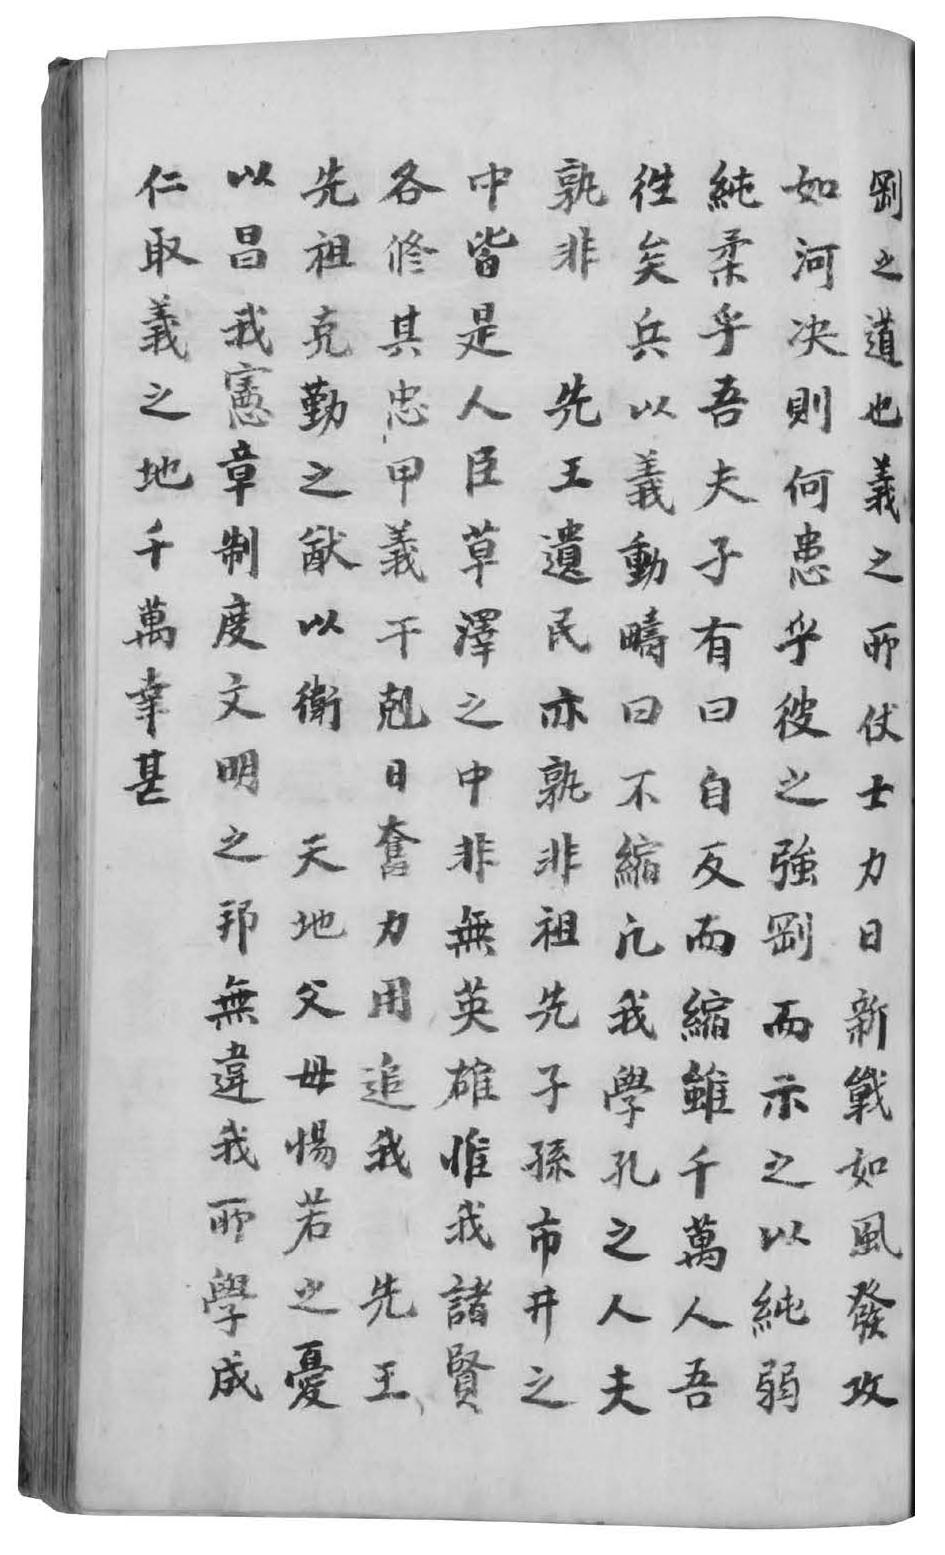 剛之道也義之所伏士力日新戰如風發攻
如河决則何患乎彼之強剛而示之以純弱
純柔乎吾夫子有曰自反而縮雖千萬人吾
徃矣兵以義動疇曰不縮凢我學孔之人夫
孰非　先王遺民亦孰非祖先子孫市井之
中皆是人臣草澤之中非無英雄惟我諸賢
各修其忠甲義干剋日奮力用追我　先王
先祖克勤之猷以衛　天地父母惕若之憂
以昌我憲章制度文明之邦無違我所學成
仁取義之地千萬幸甚